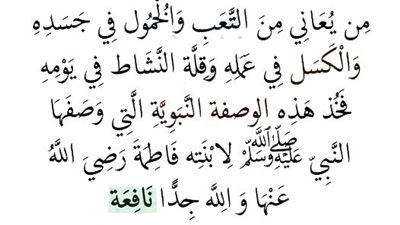 مِن يُعَانِي مِنَ التَّعَبِ وَالْخُمُول فِي جَسَدِهِ
وَالْكَسَل فِي عَمَلِهِ وَقِلَّة النَّشَاط فِي يَوْمِهِ
فَخُذ هَذِهِ الوصفة النَّبَوِيَّةِ الَّتِي وَصَفَهَا
النَّبِيّ ﷺ لِابْنَتِه فَاطِمَة رَضِيَ اللَّهُ
عَنْهَا وَ اللَّهِ جِدًّا نَافِعَة